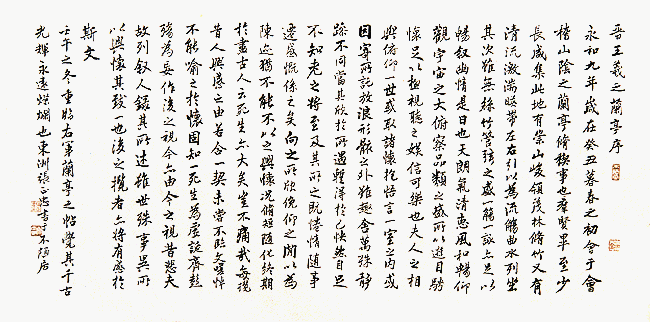 晋王羲之蘭亭序
永和九年歲在癸丑暮春之初會于會
稽山陰之蘭亭脩稧事也群賢畢至少
長咸集此地有崇山峻領茂林脩竹又有
清流激湍暎帶左右引以為流觴曲水列坐
其次雖無絲竹管弦之盛一觴一詠亦足以
暢叙幽情是日也天朗氣清惠風和暢仰
觀宇宙之大俯察品類之盛所以遊目騁
懷足以極視聽之娛信可樂也夫人之相
與俯仰一世或取諸懷抱悟言一室之内或
因寄所託放浪形骸之外雖趣舍萬殊靜
躁不同當其欣於所遇暫得於己快然自足
不知老之將至及其所之既惓情随事
遷感慨係之矣向之所欣俛仰之閒以為
陳迹猶不能不以之興懷況脩短随化終期
於盡古人云死生亦大矣豈不痛哉每攬
昔人興感之由若合一契未嘗不臨文嗟悼
不能喻之於懷固知一死生為虛誕齊彭
殤為妄作後之視今亦由今之視昔悲夫
故列叙人錄其所述雖世殊事異所
以興懷其致一也後之攬者亦將有感於
斯文
壬午之冬重臨右軍蘭亭之帖覺其千古
光輝永遠燦爛也東洲張書于不陋居